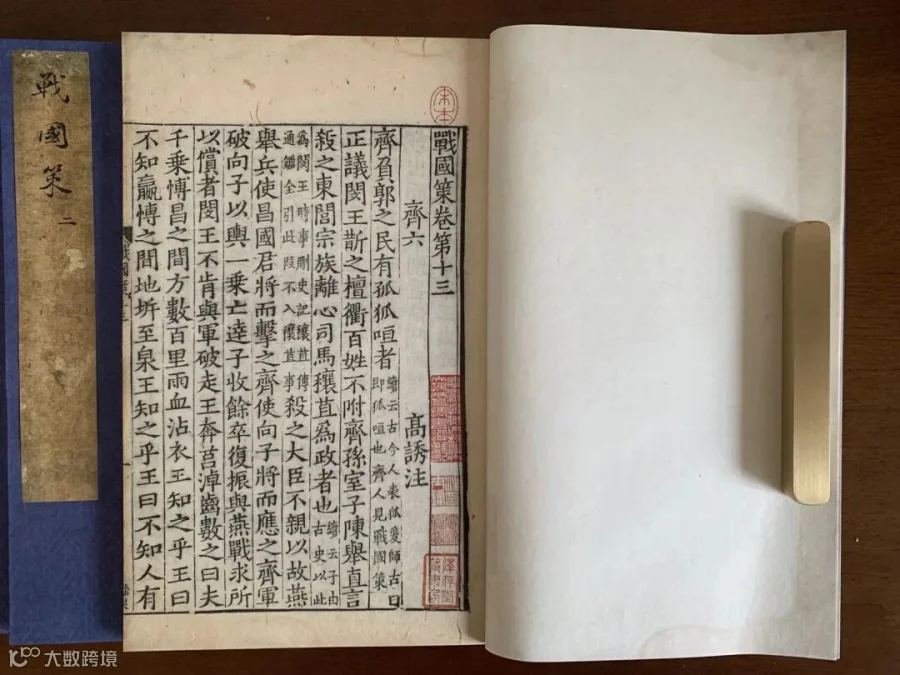 戰國策 二
宋本
戰國策卷第十三
齊六 髙誘注
齊負郭之民有狐狐咺者續云古今人表狐爰師古曰即狐咺也齊人見戰國策
正議閔王斮之檀衢百姓不附齊孫室子陳舉直言
殺之東閭宗族離心司馬穰苴爲政者也續云子由古史以此
爲閔王時事刪史記穰苴傳通鑑全引此段不入穰苴事殺之大臣不親以故燕
舉兵使昌國君將而擊之齊使向子將而應之齊軍
破向子以輿一乗亡逹子收餘卒復振與燕戰求所
以償者閔王不肯與軍破走王奔莒淖齒數之曰夫
千乗愽昌之間方數百里雨血沾衣王知之乎王曰
不知嬴愽之間地坼至泉王知之乎王曰不知人有
大数跨境